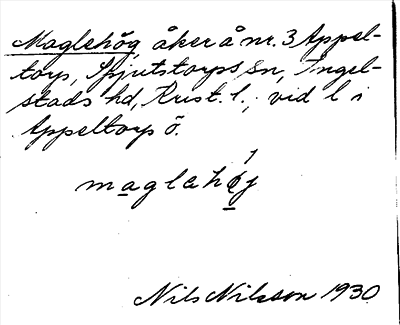 Maglehög åker å nr. 3 Appel-
torp, Spjutstorps sn, Ingel-
stads hd, Krist. l., vid l i
Appeltorp ö.
maglahøj
Nils Nilsson 1930